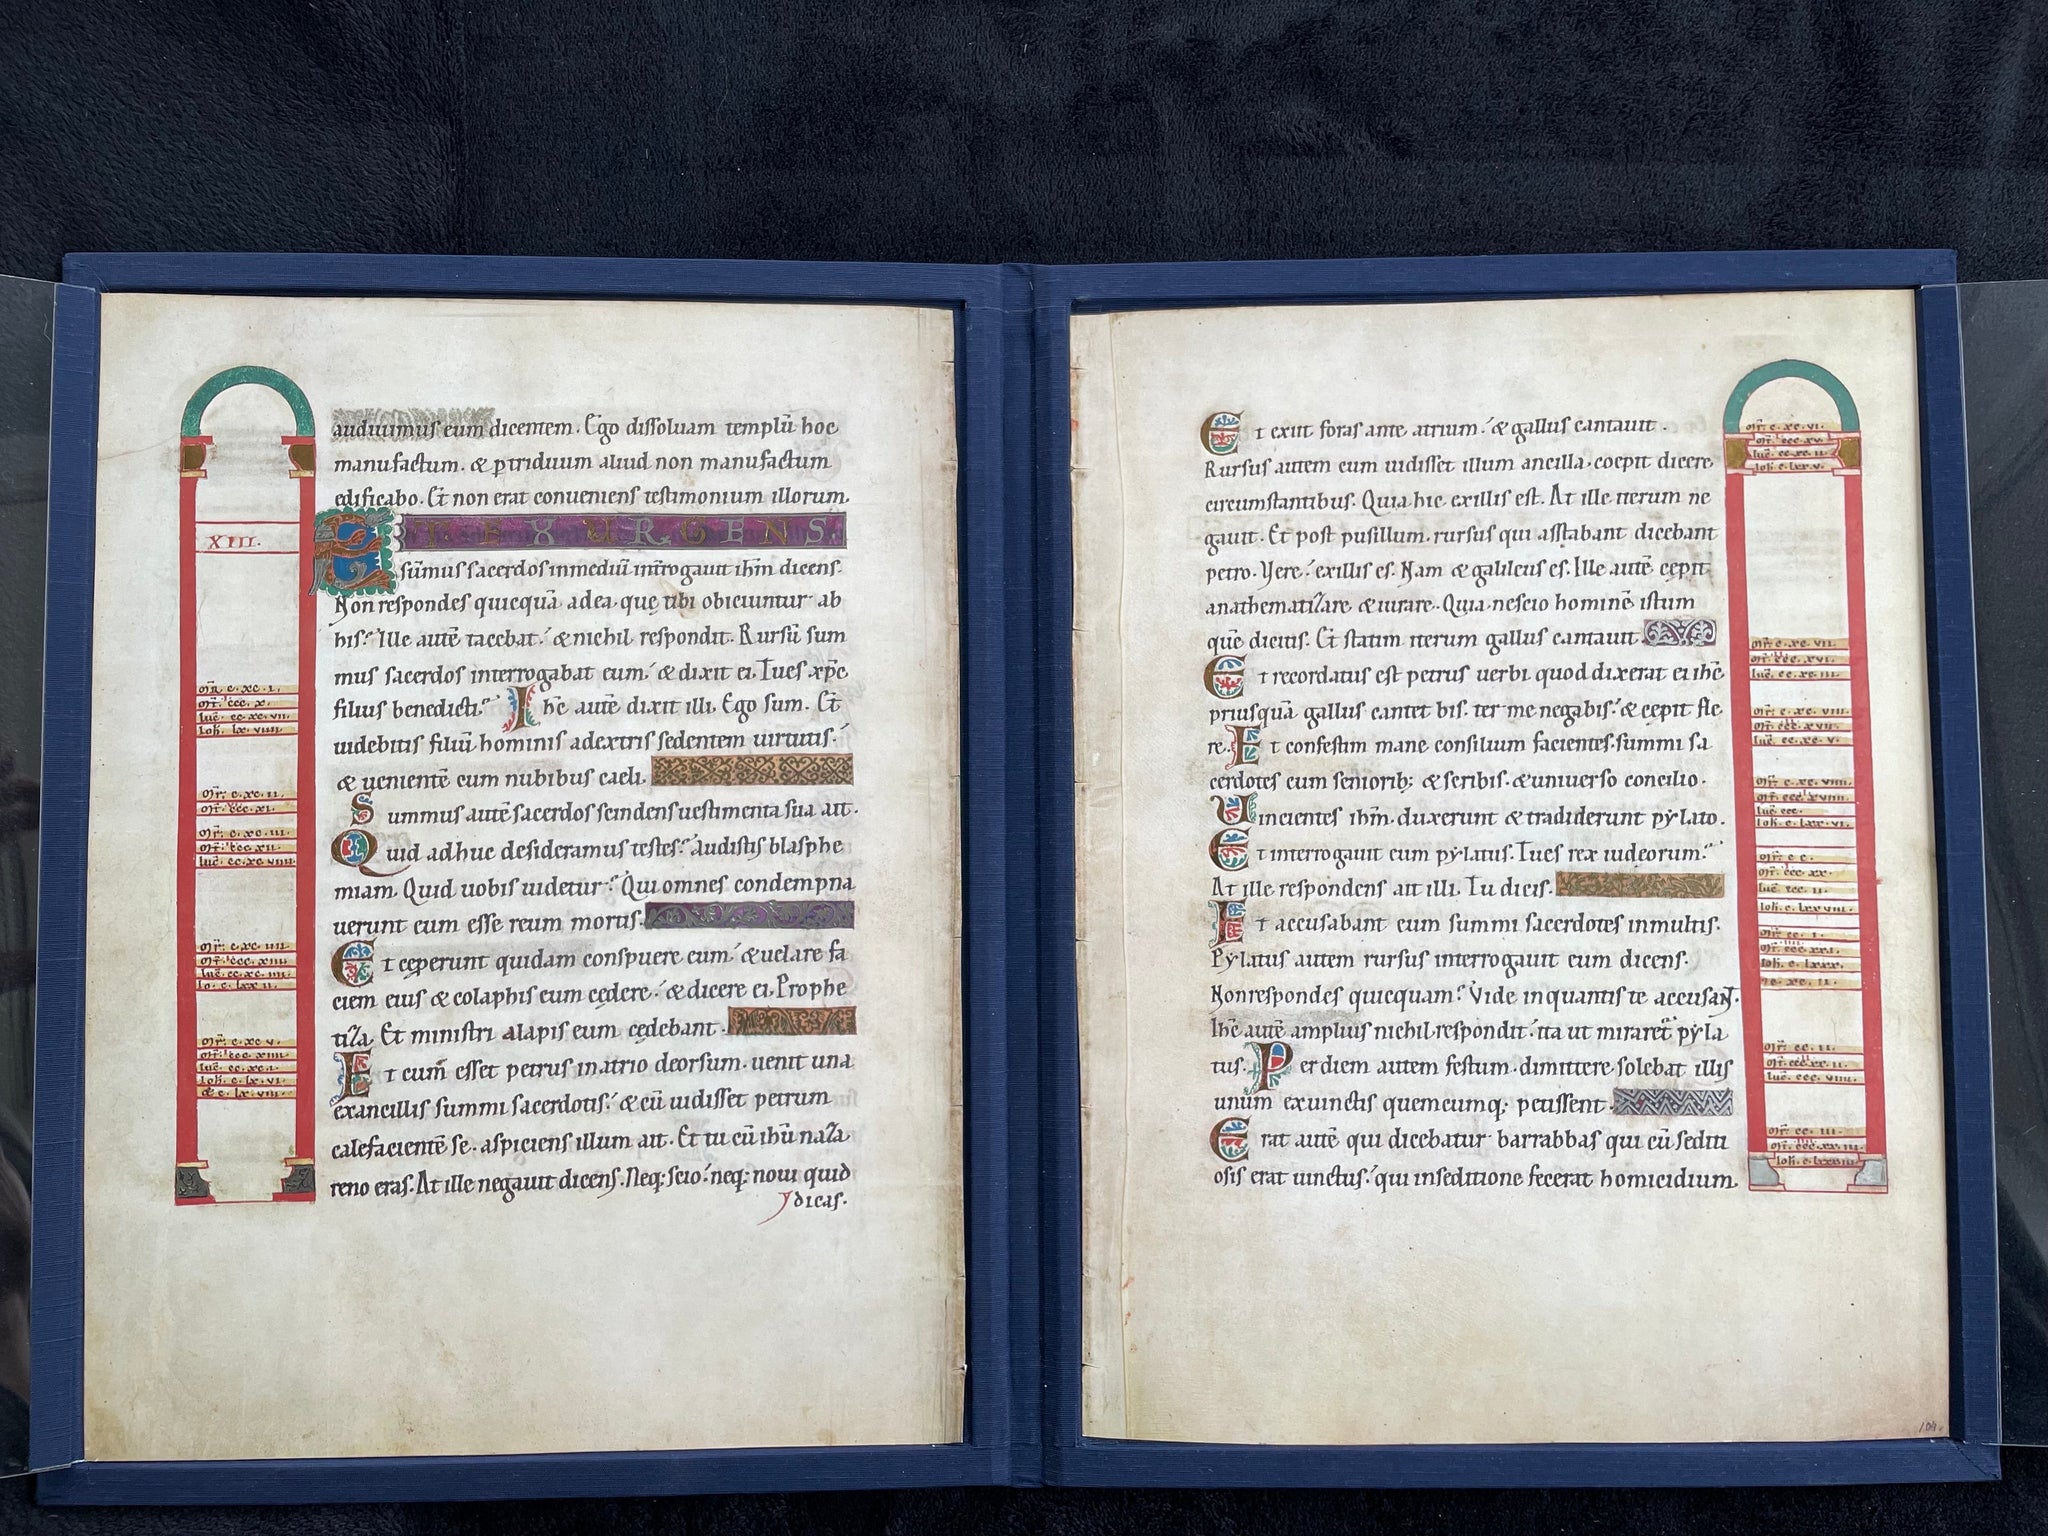 audiuimus eum dicentem. Ego dissoluam templū hoc
manufactum. & ptriduum aliud non manufactum
edificabo. Et non erat conueniens testimonium illorum.
ET EXURGENS
XIII.
sūmus sacerdos inmediū intrrogauit ihm dicens.
Non respondes quicquā adea. quę tibi obiciuntur ab
his? Ille autē tacebat. & nichil respondit. Rursū sum
mus sacerdos interrogabat eum. & dixit ei. Tu es xpc
filius benedicti? Ihc autē dixit illi. Ego sum. Et
uidebitis filiū hominis adextris sedentem uirtutis.
& uenientē cum nubibus caeli.
Summus autē sacerdos scindens uestimenta sua ait.
Quid adhuc desideramus testes? audistis blasphe
miam. Quid uobis uidetur? Qui omnes condempna
uerunt eum esse reum mortis.
Et cęperunt quidam conspuere eum. & uelare fa
ciem eius & colaphis eum cędere. & dicere ei. Prophe
tiza. Et ministri alapis eum cędebant.
Et cum esset petrus in atrio deorsum. uenit una
exancillis summi sacerdotis. & cū uidisset petrum
calefacientē se. aspiciens illum ait. Et tu cū ihū naza
reno eras. At ille negauit dicens. Neq; scio. neq; noui quid
dicas.
m̄r. c. xc. i.
m̄r. ccc. x.
luc. cc. xc. vii.
ioh. c. lx. viiii.
m̄r. c. xc. ii.
m̄r. ccc. xi.
m̄r. c. xc. iii.
m̄r. ccc. xii.
luc. cc. xc. viiii.
m̄r. c. xc. iiii.
m̄r. ccc. xiii.
luc. cc. xc. iiii.
io. c. lxx ii.
m̄r. c. xc. v.
m̄r. ccc. xiiii.
luc. cc. xc. i.
ioh. c. lx. vi.
& c. lx. viii.
Et exiit foras ante atrium. & gallus cantauit.
Rursus autem cum uidisset illum ancilla. coepit dicere
circumstantibus. Quia hic exillis est. At ille iterum ne
gauit. Et post pusillum. rursus qui asstabant dicebant
petro. Vere. exillis es. Nam & galileus es. Ille autē cępit
anathematizare & iurare. Quia nescio hominē istum
quē dicitis. Et statim iterum gallus cantauit.
Et recordatus est petrus uerbi quod dixerat ei ihc
priusquā gallus cantet bis. ter me negabis. & cępit fle
re. Et confestim mane consilium facientes summi sa
cerdotes cum seniorib; & scribis. & uniuerso concilio.
Uincientes ihm. duxerunt & tradiderunt pylato.
Et interrogauit eum pylatus. Tu es rex iudeorum?
At ille respondens ait illi. Tu dicis.
Et accusabant eum summi sacerdotes inmultis.
Pylatus autem rursus interrogauit eum dicens.
Non respondes quicquam? Vide inquantis te accusant.
Ihc autē amplius nichil respondit. ita ut miraretur pyla
tus. Per diem autem festum. dimittere solebat illis
unum exuinctis quemcumq; petissent.
Erat autē qui dicebatur barrabbas qui cū sediti
osis erat uinctus. qui inseditione fecerat homicidium.
m̄r. c. xc. vi.
m̄r. ccc. xv.
luc. cc. xc. ii.
ioh. c. lxx. v.
m̄r. c. xc. vii.
m̄r. ccc. xvi.
luc. cc. xc. iii.
m̄r. c. xc. viii.
m̄r. ccc. xvii.
luc. cc. xc. v.
m̄r. c. xc. viiii.
m̄r. ccc. xviii.
luc. ccc.
ioh. c. lxx. vi.
m̄r. c c.
m̄r. ccc. xx.
luc. ccc. ii.
ioh. c. lxx viii.
m̄r. cc. i.
m̄r. ccc. xx i.
ioh. c. lxxx.
m̄r. cc. ii.
m̄r. ccc. xx ii.
luc. ccc. viiii.
m̄r. cc. iii.
m̄r. ccc. xx. iii.
104